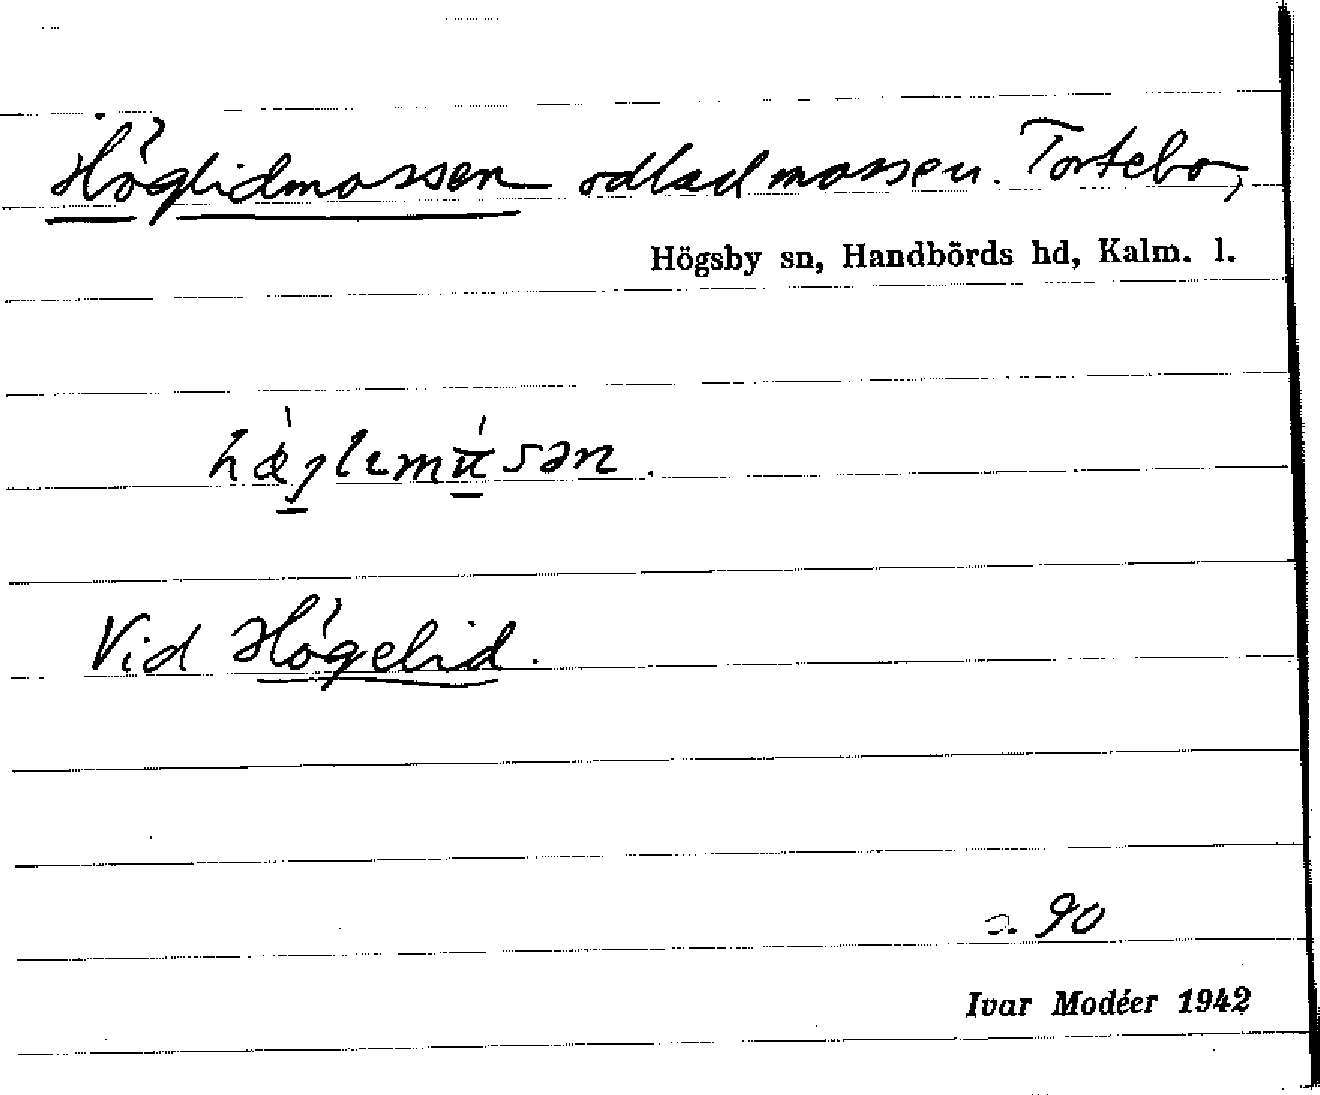 Höglidmossen odlad mossen. Tortebo,
Högsby sn, Handbörds hd, Kalm. l.
Vid Högelid.
90
Ivar Modéer 1942